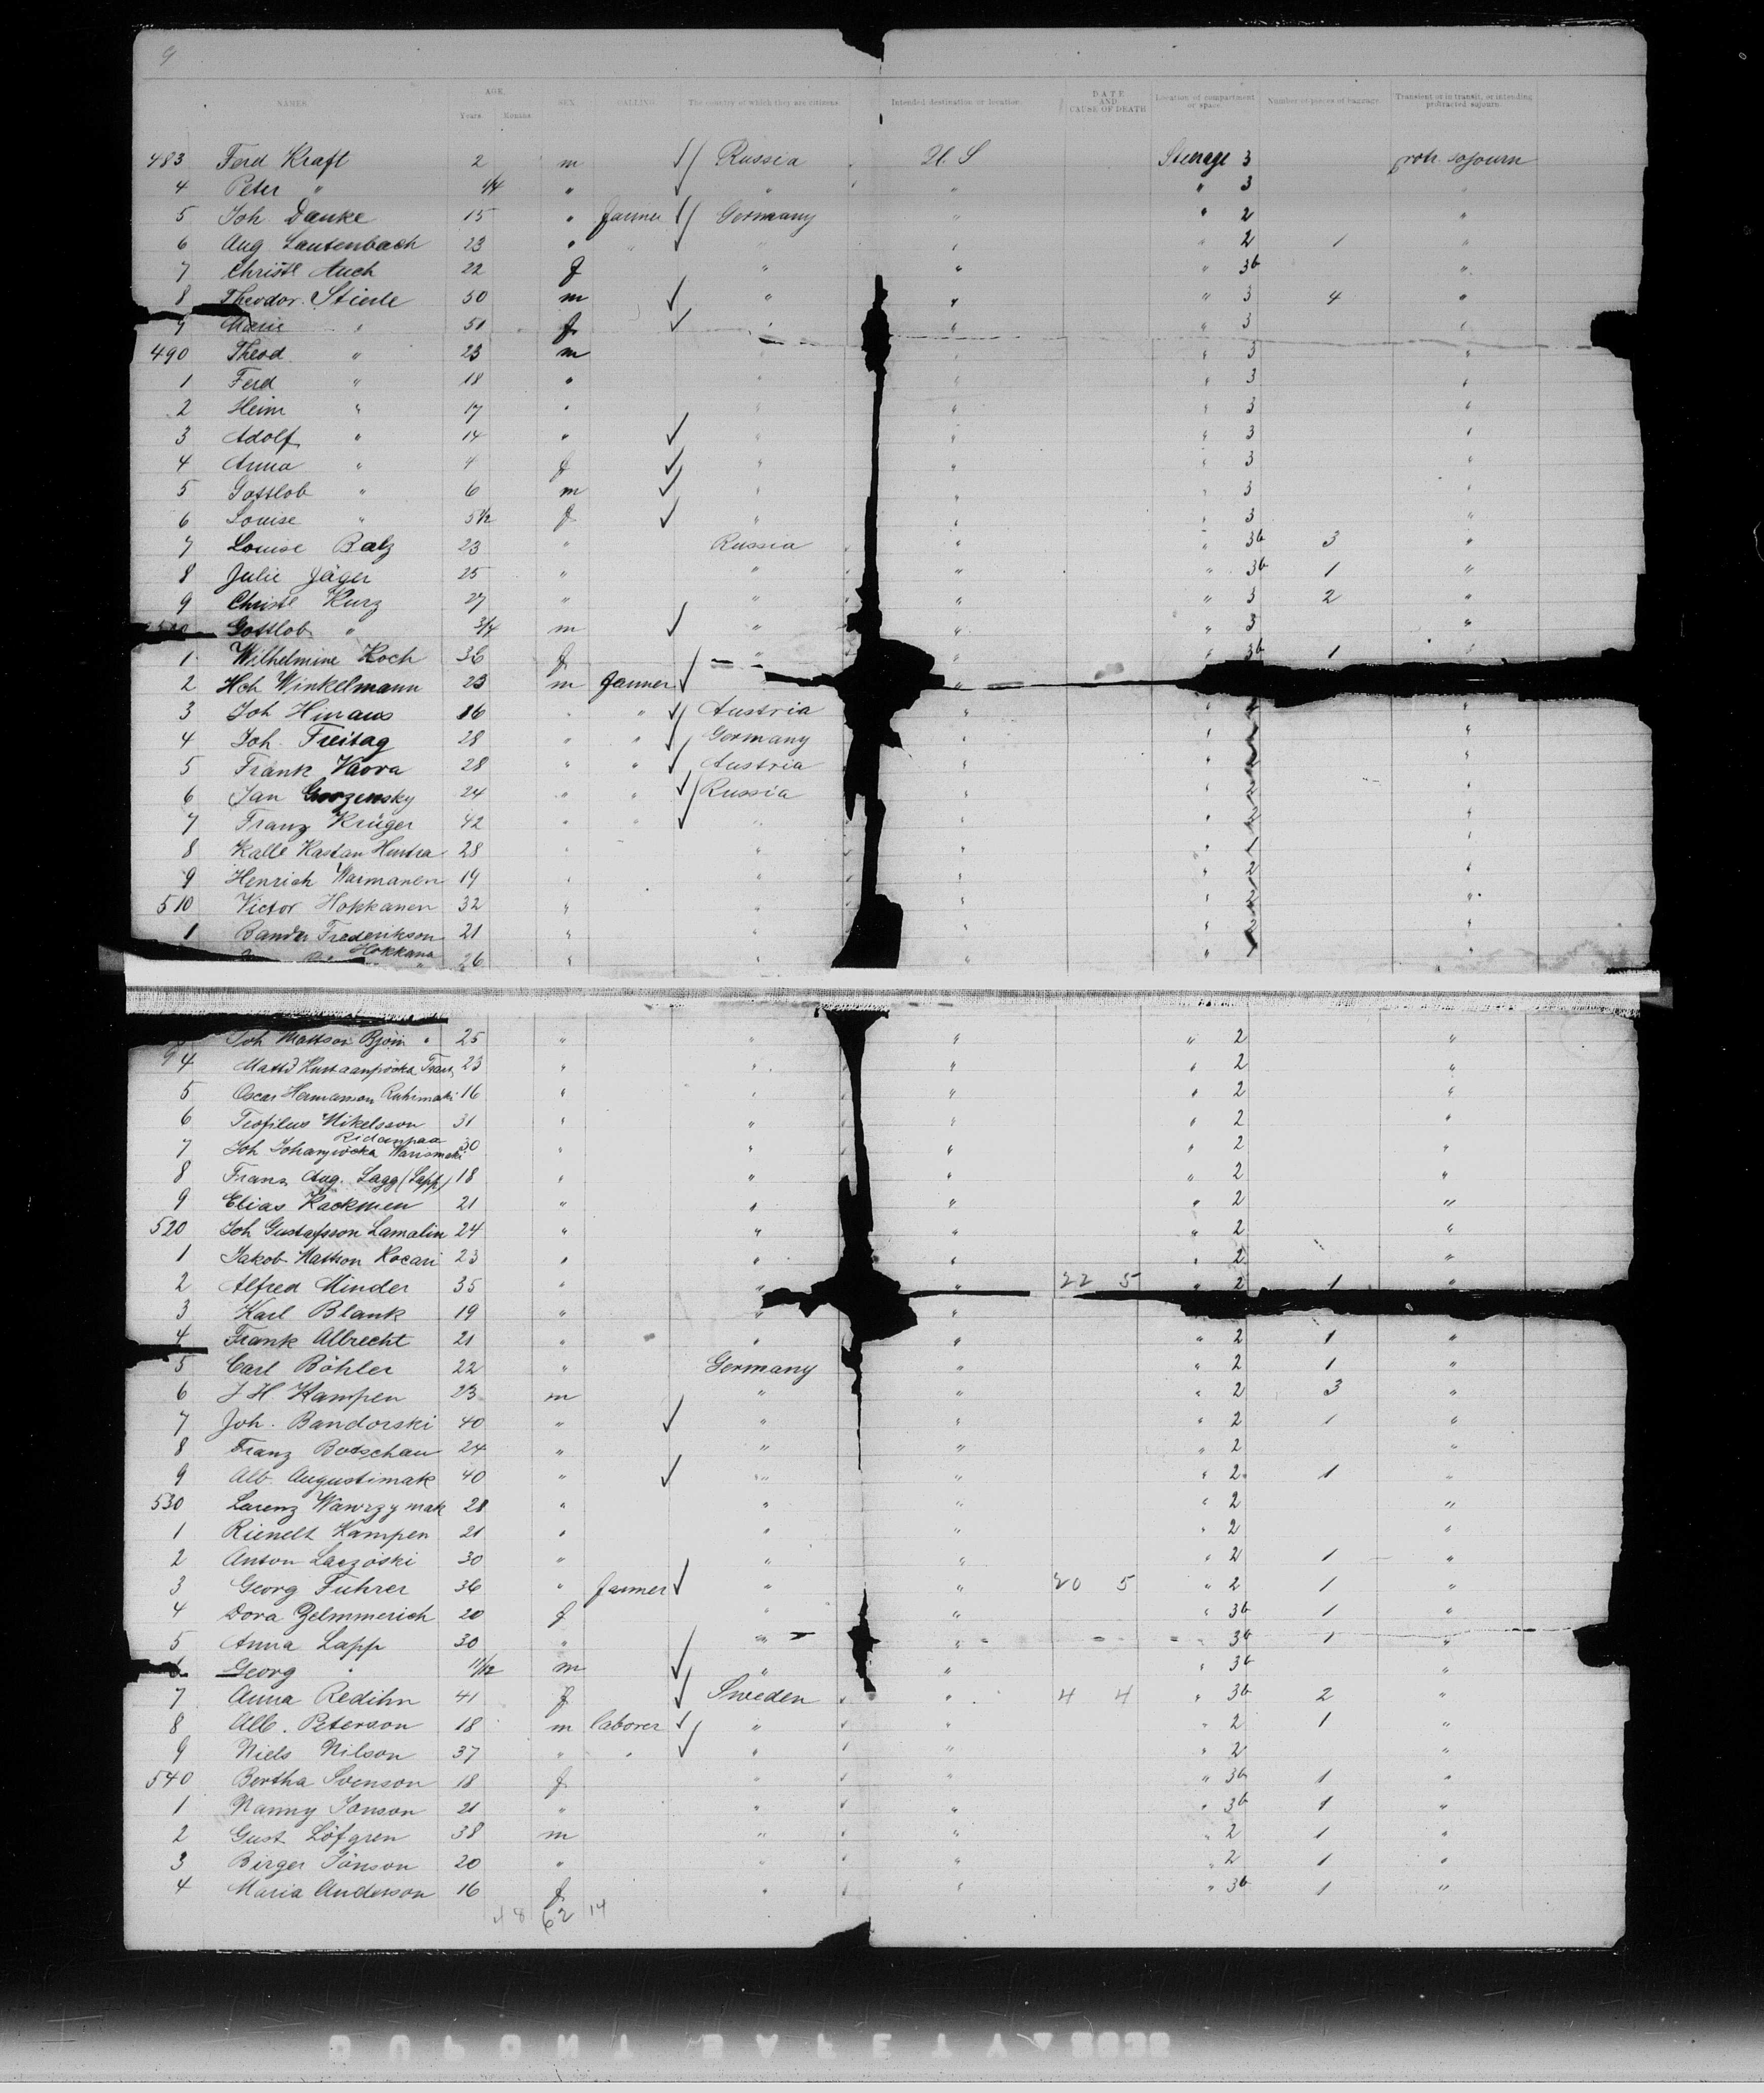 9
NAMES AGE. Years Months SEX CALLING The country of which they are citizens Intended destination or location DATE AND CAUSE OF DEATH Location of compartment or space Number of pieces of baggage Transient or in transit, or intending protracted sojourn
483 Ferd Kraft 2 m √√ Russia U S Steerage 3 protr. sojourn
4 Peter " 1/4 " √ " " " 3 "
5 Joh Danke 15 " farmer √√ Germany " " 2 "
6 Aug Lautenbach 23 " " √ " " " 2 1 "
7 Christe Auch 22 f " " " 3b "
8 Theodor Stierle 50 m √ " " " 3 4 "
9 Marie " 51 f √ " " " 3 "
490 Theod " 23 m " " " 3 "
1 Ferd " 18 " " " " 3 "
2 Heinr " 17 " " " " 3 "
3 Adolf " 14 " √ " " " 3 "
4 Anna " 4 f √ " " " 3 "
5 Gottlob " 6 m √ " " " 3 "
6 Louise " 5 1/2 f √ " " " 3 "
7 Louise Balz 23 " Russia " " 3b 3 "
8 Julie Jäger 25 " " " " 3b 1 "
9 Christe Kurz 27 " " " " 3 2 "
500 Gottlob " 3/4 m √ " " " 3 "
1 Wilhelmine Koch 36 f " " " 3b 1 "
2 Hch Winkelmann 23 m farmer √ " "
3 Joh Hinaus 16 " " √√ Austria " " "
4 Joh. Freitag 28 " " √ Germany " " "
5 Frank Vavra 28 " " √ Austria " " "
6 Jan Gorzensky 24 " " √√ Russia " " "
7 Franz Krüger 42 " " √ " " " 2 "
8 Kalle Kastan Huhta 28 " " " " "
9 Henrich Warmanen 19 " " " " 2 "
510 Victor Hokkanen 32 " " " " 2 "
1 Sander Frederikson 21 " " " " 2 "
Hokkana " 26 " " " " "
Joh Mattson Björn " 25 " " " " 2 "
4 Matts Kustaanpoika 23 " " " " 2 "
5 Oscar Hermanson Ruhimaki 16 " " " " 2 "
6 Teofilus Mikelsson 31 " " " " 2 "
Ridanpaa
7 Joh Johanpoika Warismaki 30 " " " " 2 "
8 Frans Aug. Lagg (Lapp) 18 " " " " 2 "
9 Elias Kackmen 21 " " " " 2 "
520 Joh Gustafsson Lamalin 24 " " " " 2 "
1 Jakob Mattson Kocari 23 " " " " 2 "
2 Alfred Minder 35 " " " 22 5 " 2 1 "
3 Karl Blank 19 " " "
4 Frank Albrecht 21 " " " " 2 1 "
5 Carl Böhler 22 " Germany " " 2 1 "
6 J H. Kampen 23 m " " " 2 3 "
7 Joh. Bandorski 40 " √ " " " 2 1 "
8 Franz Botschau 24 " " " " 2 "
9 Alb. Augustimak 40 " √ " " " 2 1 "
530 Lorenz Wawrzymak 28 " " " " 2 "
1 Rienelt Kampen 21 " " " " 2 "
2 Anton Laczoski 30 " " " " 2 1 "
3 Georg Fuhrer 36 " farmer √ " " 20 5 " 2 1 "
4 Dora Zelmmerich 20 f " " " 3b 1 "
5 Anna Lapp 30 " √ " " " 3b 1 "
6 Georg " 11/12 m √ " " " 3b "
7 Anna Redihn 41 f √ Sweden " 4 4 " 3b 2 "
8 Alb. Peterson 18 m laborer √ " " " 2 1 "
9 Niels Nilson 37 " " √ " " " 2 "
540 Bertha Svenson 18 f " " " 3b 1 "
1 Nanny Jonson 21 " " " " 3b 1 "
2 Gust Löfgren 38 m " " " 2 1 "
3 Birger Jönson 20 " " " " 2 1 "
4 Maria Anderson 16 f " " " 3b 1 "
48 62 14
DUPONT SAFETY